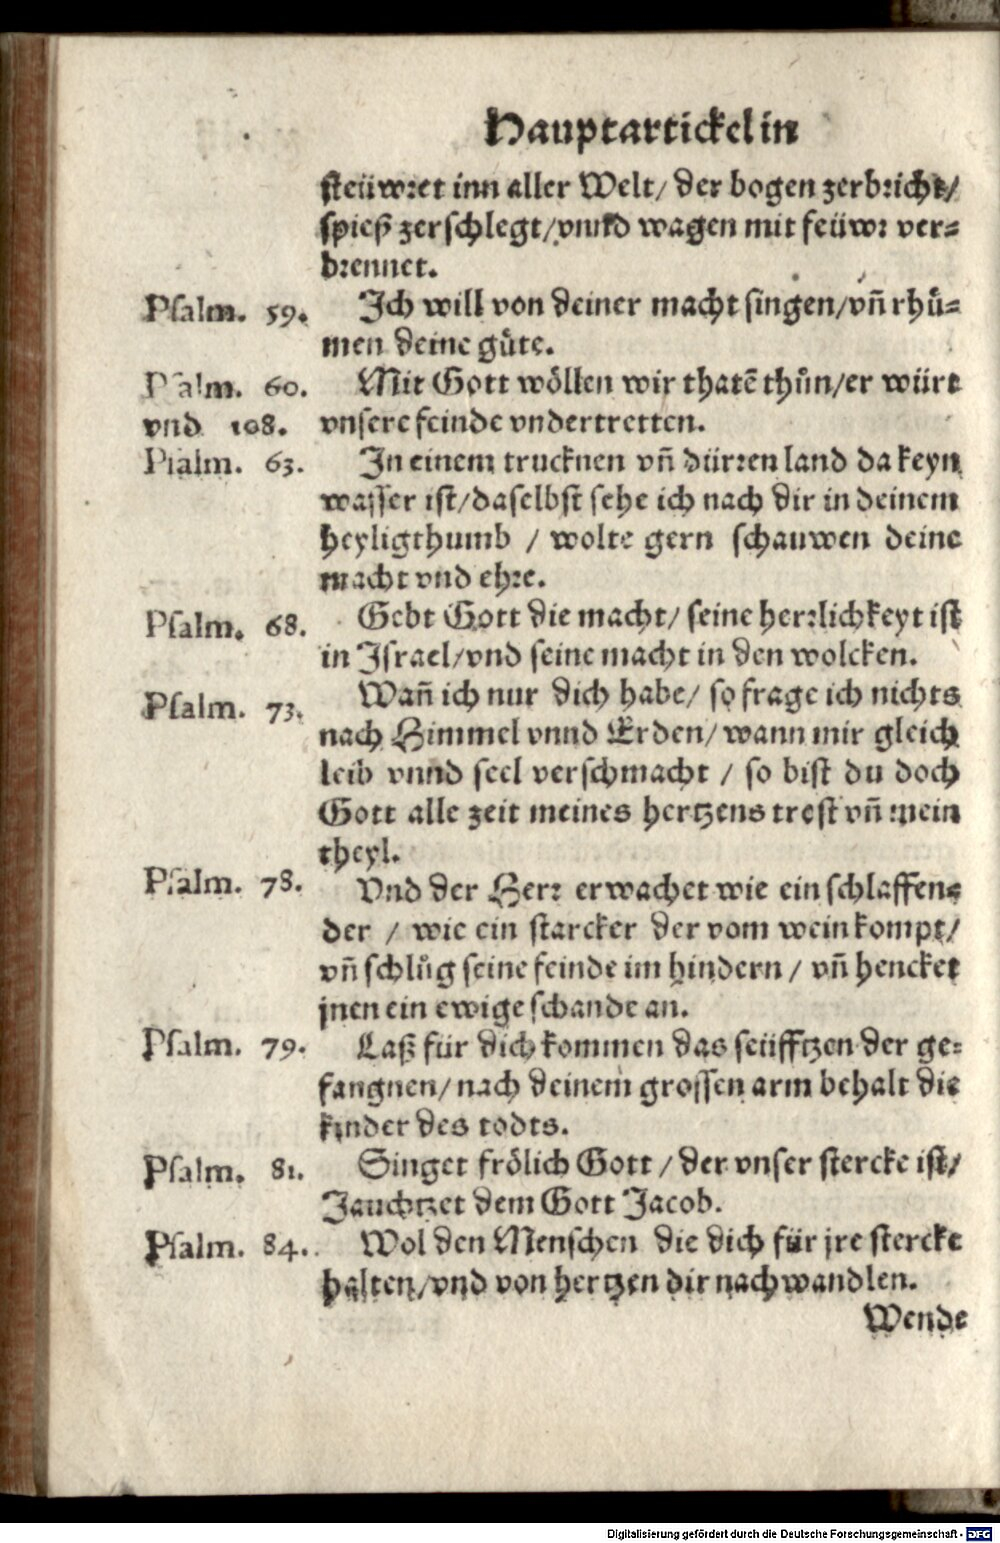 Hauptartickel in
steüwret inn aller Welt/ der bogen zerbricht/
spieß zerschlegt/vnnd wagen mit feüwr ver-
brennet.
Psalm. 59. Ich will von deiner macht singen/vñ rhü-
men deine güte.
Psalm. 60. Mit Gott wöllen wir thatẽ thůn/er würt
vnd 108. vnsere feinde vndertretten.
Psalm. 63. In einem trucknen vñ dürren land da keyn
wasser ist/daselbst sehe ich nach dir in deinem
heyligthumb / wolte gern schauwen deine
macht vnd ehre.
Psalm. 68. Gebt Gott die macht/ seine herrlichkeyt ist
in Israel/vnd seine macht in den wolcken.
Psalm. 73. Wañ ich nur dich habe/ so frage ich nichts
nach Himmel vnnd Erden/ wann mir gleich
leib vnnd seel verschmacht / so bist du doch
Gott alle zeit meines hertzens trost vñ mein
theyl.
Psalm. 78. Vnd der Herr erwachet wie ein schlaffen-
der / wie ein starcker der vom wein kompt/
vñ schlůg seine feinde im hindern / vñ hencket
jnen ein ewige schande an.
Psalm. 79. Laß für dich kommen das seüfftzen der ge-
fangnen/ nach deinem grossen arm behalt die
kinder des todts.
Psalm. 81. Singet frölich Gott / der vnser stercke ist/
Jauchtzet dem Gott Jacob.
Psalm. 84. Wol den Menschen die dich für jre stercke
halten/vnd von hertzen dir nachwandlen.
Wende
Digitalisierung gefördert durch die Deutsche Forschungsgemeinschaft - DFG